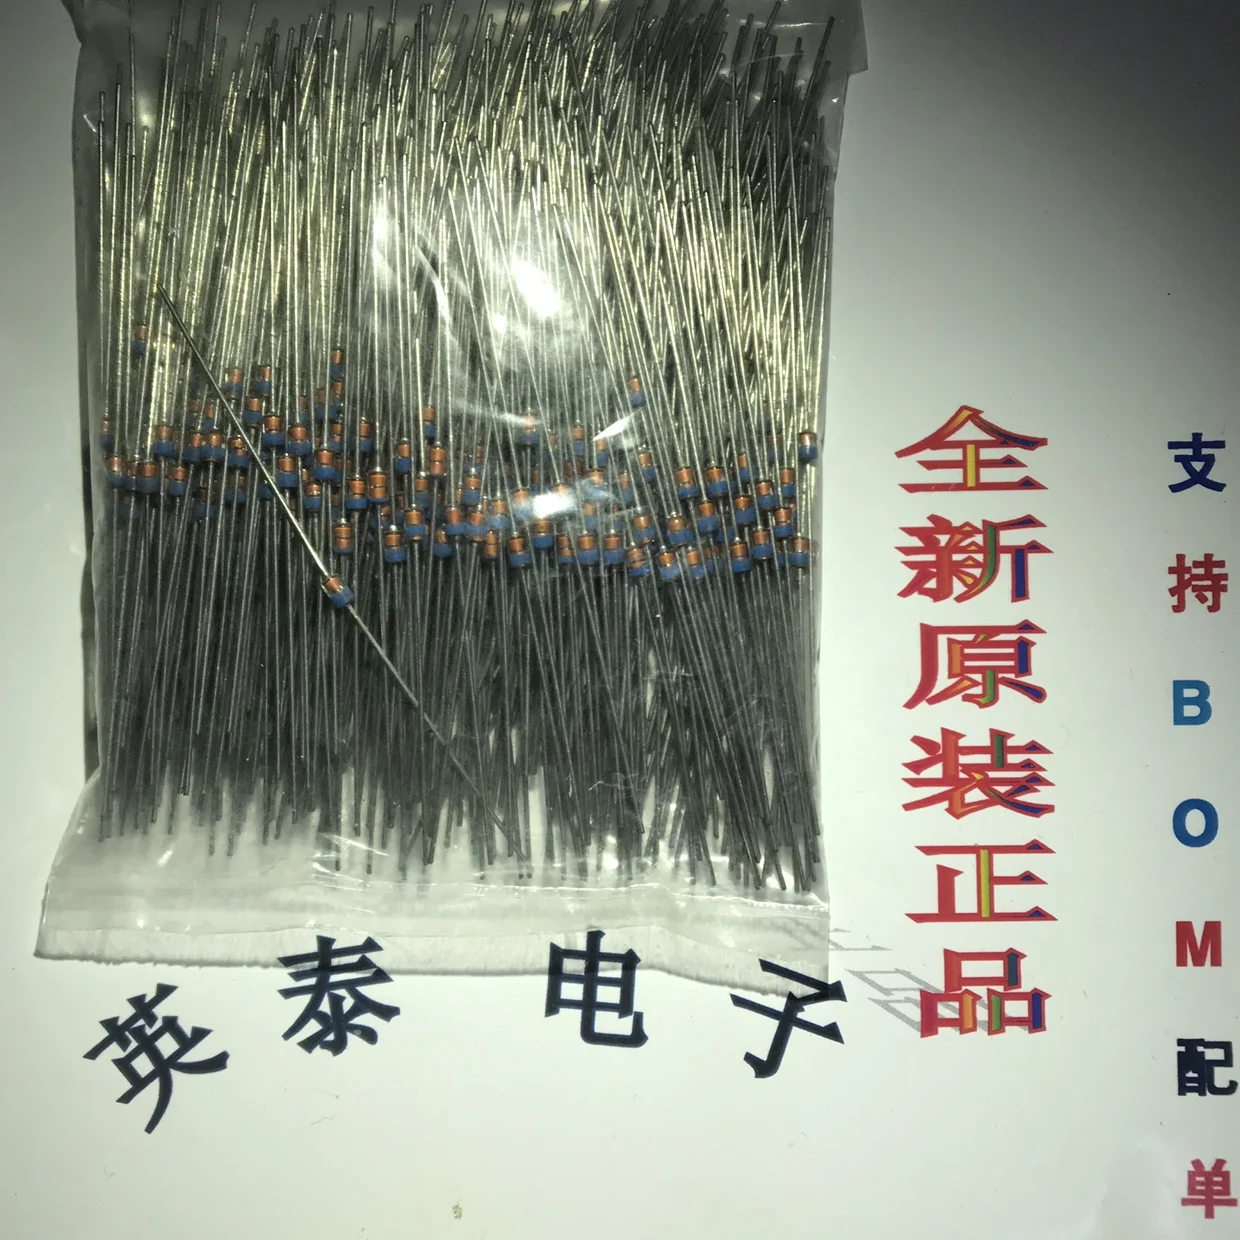 英泰电子
全新原装正品
支持BOM配单